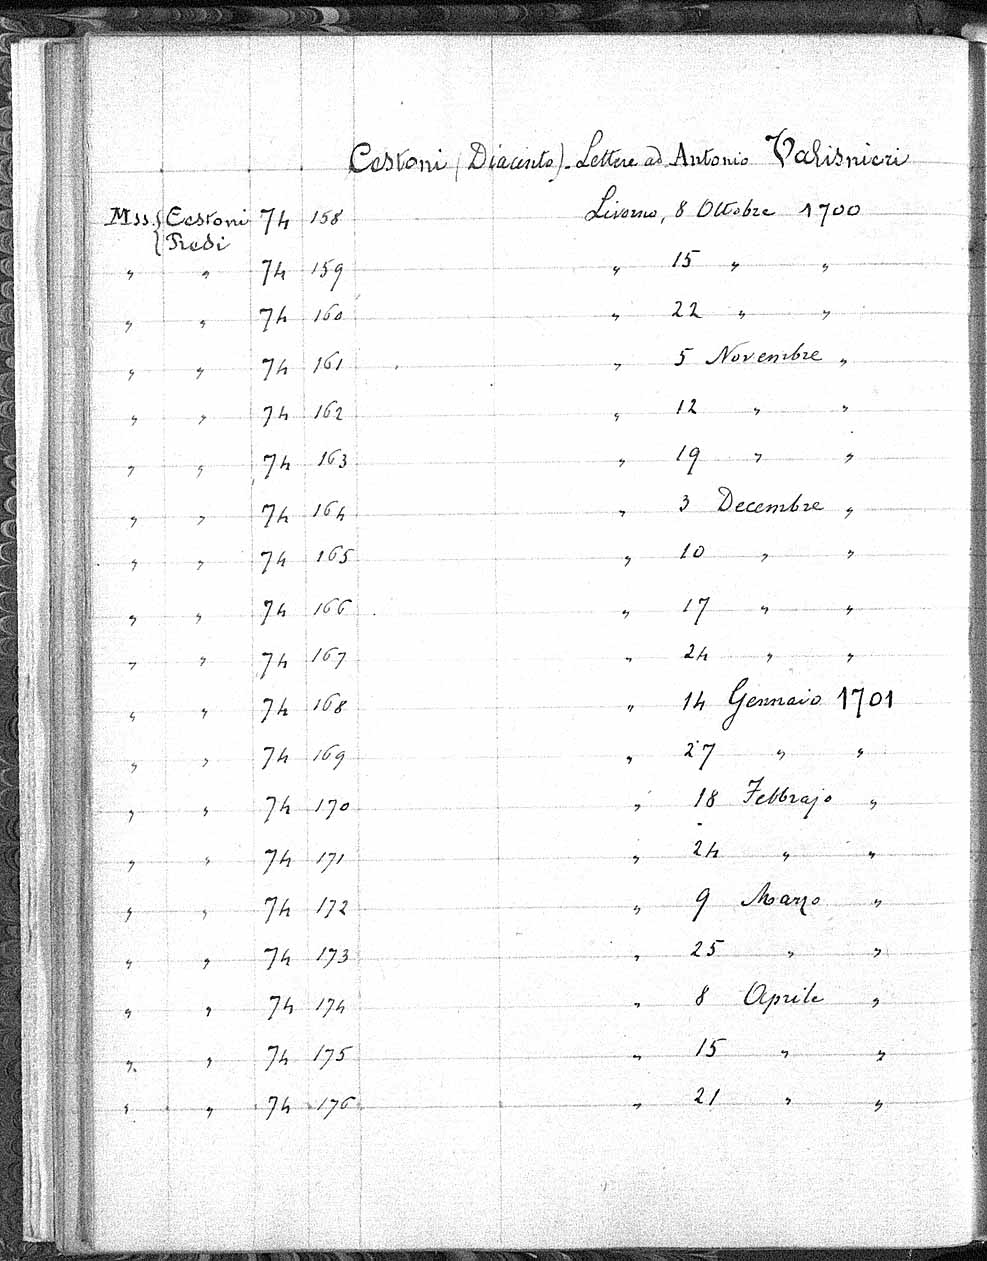 Cestoni (Diacinto). Lettere ad Antonio Valisnieri
Mss. { Cestoni 74 158 Livorno, 8 Ottobre 1700
Redi
„ „ 74 159 „ 15 „ „
„ „ 74 160 „ 22 „ „
„ „ 74 161 „ 5 Novembre „
„ „ 74 162 „ 12 „ „
„ „ 74 163 „ 19 „ „
„ „ 74 164 „ 3 Decembre „
„ „ 74 165 „ 10 „ „
„ „ 74 166 „ 17 „ „
„ „ 74 167 „ 24 „ „
„ „ 74 168 „ 14 Gennaio 1701
„ „ 74 169 „ 27 „ „
„ „ 74 170 „ 18 Febbrajo „
„ „ 74 171 „ 24 „ „
„ „ 74 172 „ 9 Marzo „
„ „ 74 173 „ 25 „ „
„ „ 74 174 „ 8 Aprile „
„ „ 74 175 „ 15 „ „
„ „ 74 176 „ 21 „ „